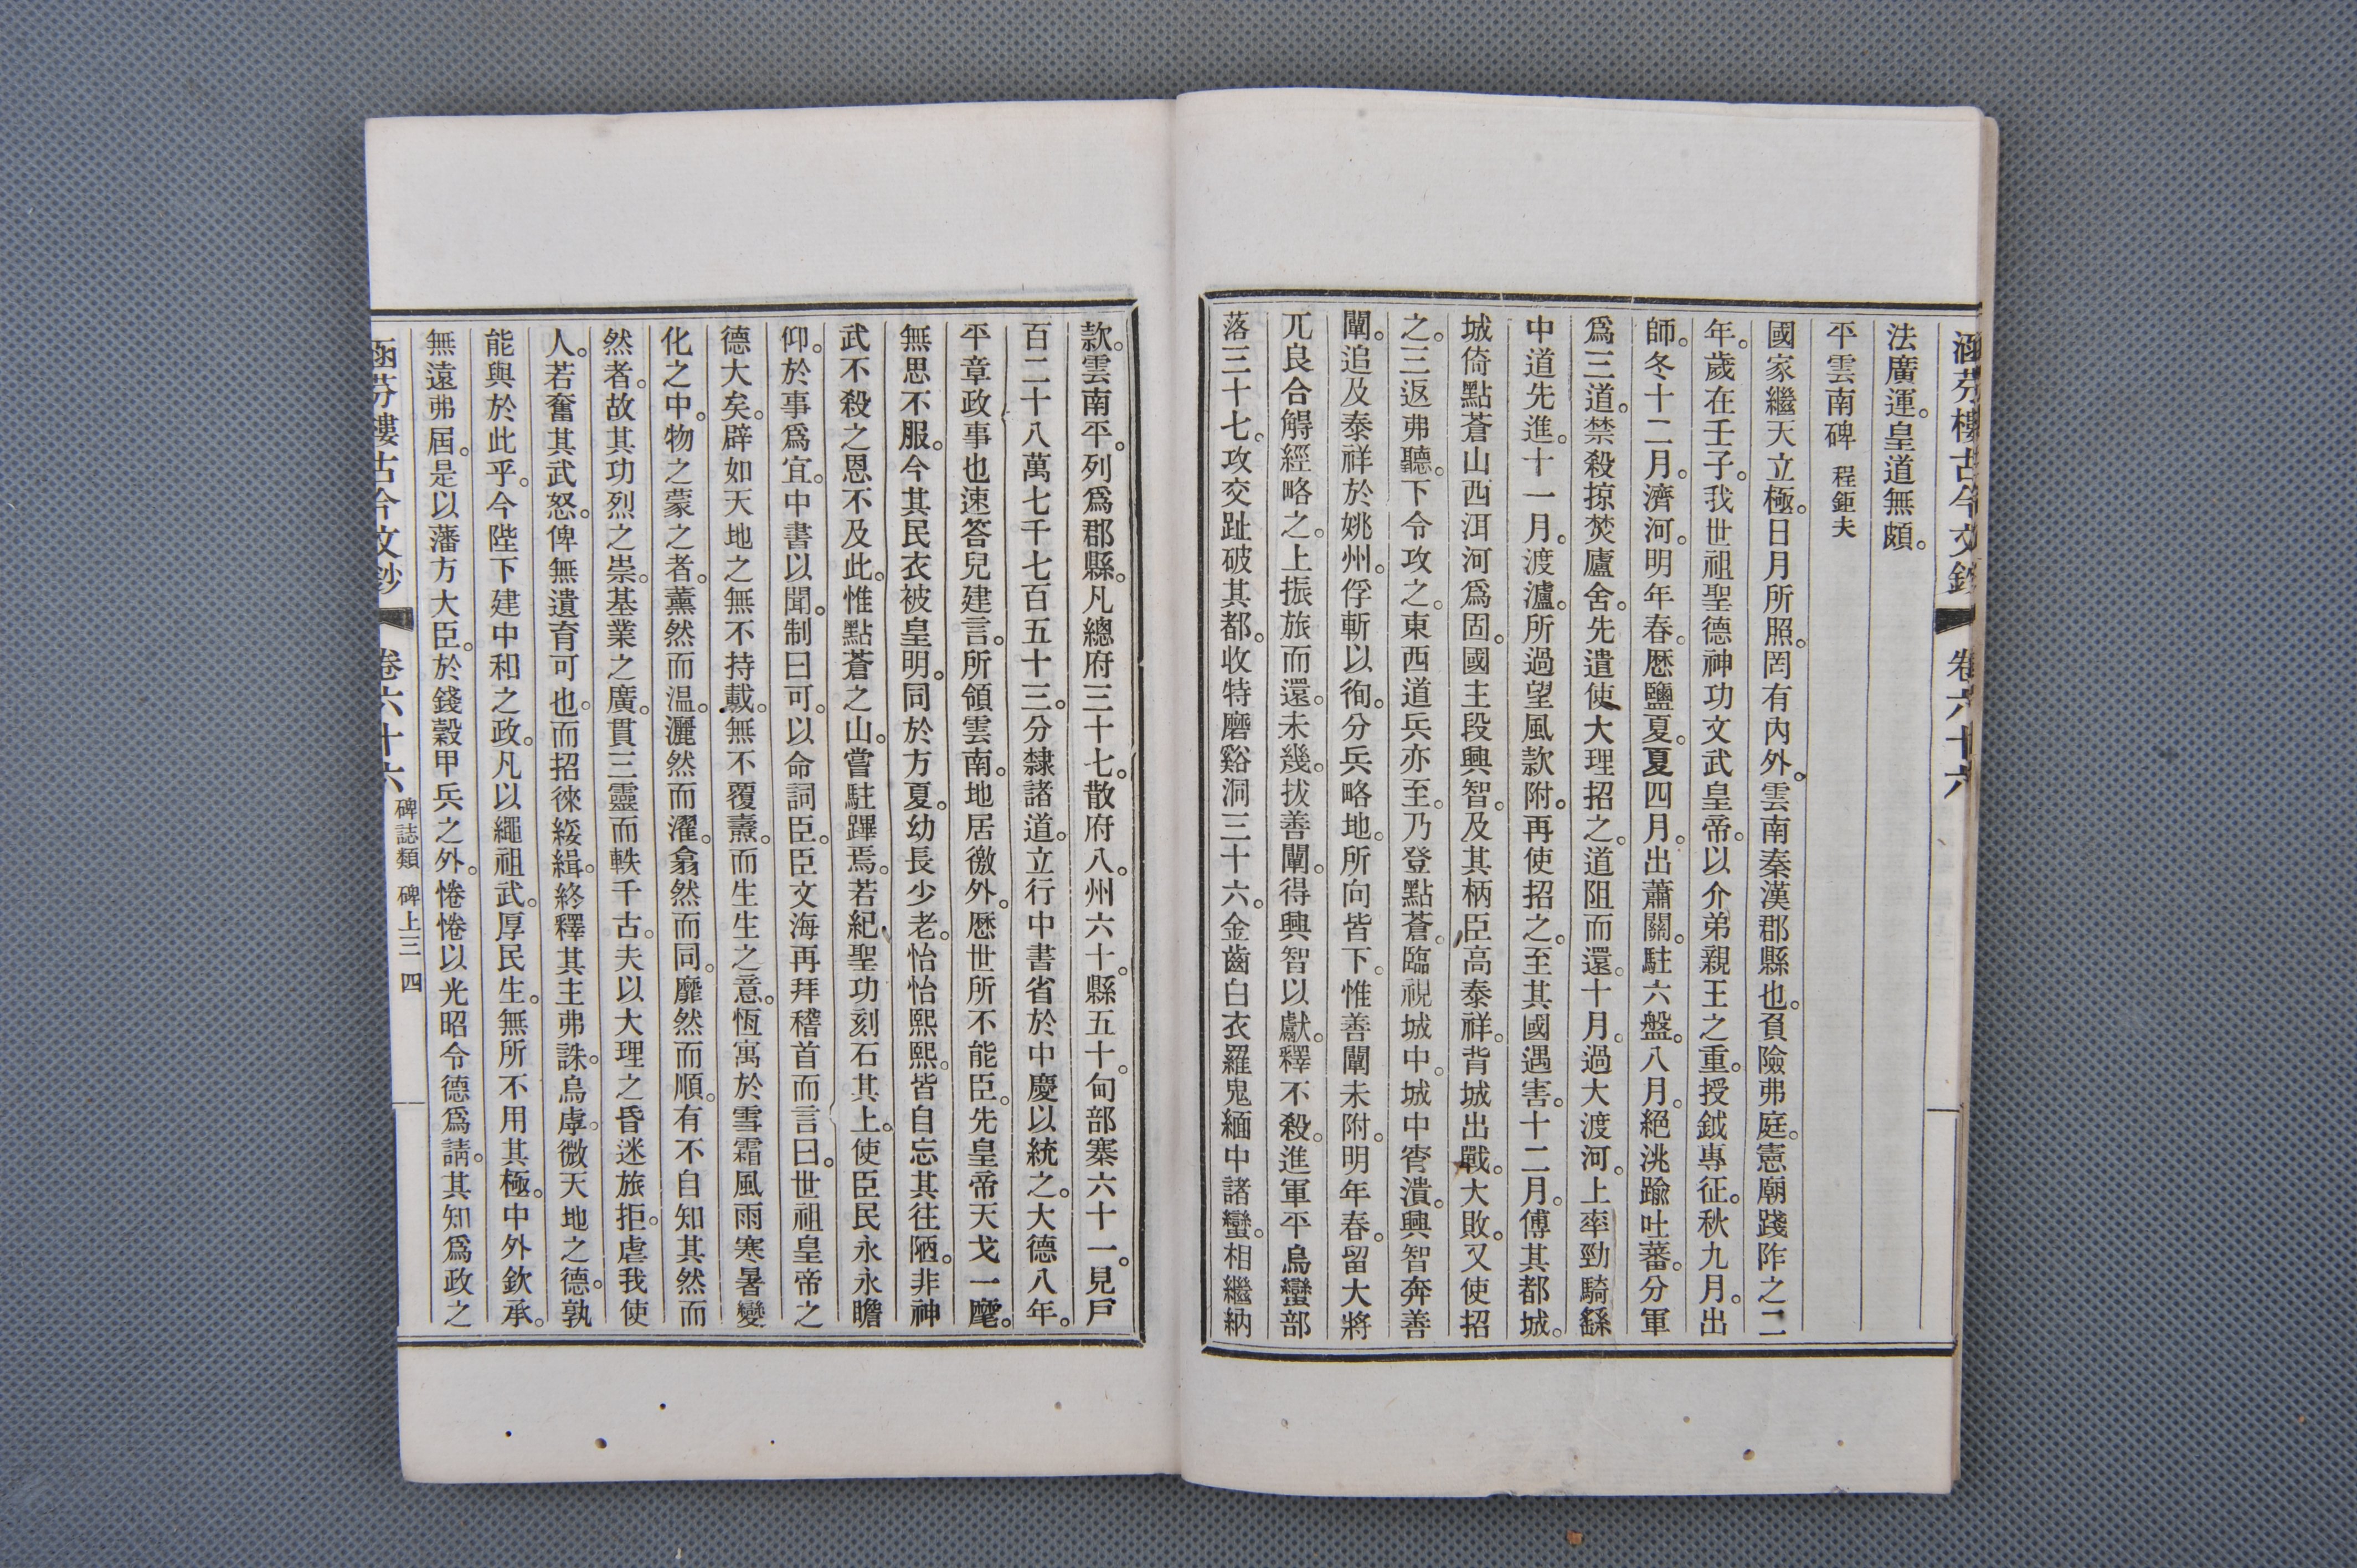 涵芬樓古今文鈔 卷六十六
法廣運。皇道無頗。
平雲南碑 程鉅夫
國家繼天立極。日月所照。罔有內外。雲南秦漢郡縣也。負險弗庭。憲廟踐阼之二
年。歲在壬子。我世祖聖德神功文武皇帝。以介弟親王之重。授鉞專征。秋九月。出
師。冬十二月。濟河。明年春。歷鹽夏。夏四月。出蕭關。駐六盤。八月。絕洮踰吐蕃。分軍
爲三道。禁殺掠焚廬舍。先遣使大理招之。道阻而還。十月。過大渡河。上率勁騎繇
中道先進。十一月。渡瀘。所過望風款附。再使招之。至其國遇害。十二月。傅其都城。
城倚點蒼山西洱河爲固。國主段興智。及其柄臣高泰祥。背城出戰。大敗。又使招
之。三返弗聽。下令攻之。東西道兵亦至。乃登點蒼。臨視城中。城中宵潰。興智奔善
闡。追及泰祥於姚州。俘斬以徇。分兵略地。所向皆下。惟善闡未附。明年春。留大將
兀良合䚟經略之。上振旅而還。未幾。拔善闡。得興智以獻。釋不殺。進軍平烏蠻部
落三十七。攻交趾破其都。收特磨谿洞三十六。金齒白衣羅鬼緬中諸蠻。相繼納
款。雲南平。列爲郡縣。凡總府三十七。散府八。州六十。縣五十。甸部寨六十一。見戶
百二十八萬七千七百五十三。分隸諸道。立行中書省於中慶以統之。大德八年。
平章政事也速答兒建言。所領雲南。地居徼外。歷世所不能臣。先皇帝天戈一麾。
無思不服。今其民衣被皇明。同於方夏。幼長少老。怡怡熙熙。皆自忘其往陋。非神
武不殺之恩不及此。惟點蒼之山。嘗駐蹕焉。若紀聖功刻石其上。使臣民永永瞻
仰。於事爲宜。中書以聞。制曰可。以命詞臣。臣文海再拜稽首而言曰。世祖皇帝之
德大矣。辟如天地之無不持載。無不覆燾。而生生之意。恆寓於雪霜風雨寒暑變
化之中。物之蒙之者。薰然而温。灑然而濯。翕然而同。靡然而順。有不自知其然而
然者。故其功烈之崇。基業之廣。貫三靈而軼千古。夫以大理之昏迷旅拒。虐我使
人。若奮其武怒。俾無遺育可也。而招徠綏緝。終釋其主弗誅。烏虖。微天地之德。孰
能與於此乎。今陛下建中和之政。凡以繩祖武。厚民生。無所不用其極。中外欽承。
無遠弗屆。是以藩方大臣。於錢穀甲兵之外。惓惓以光昭令德爲請。其知爲政之
涵芬樓古今文鈔 卷六十六 碑誌類 碑上三 四